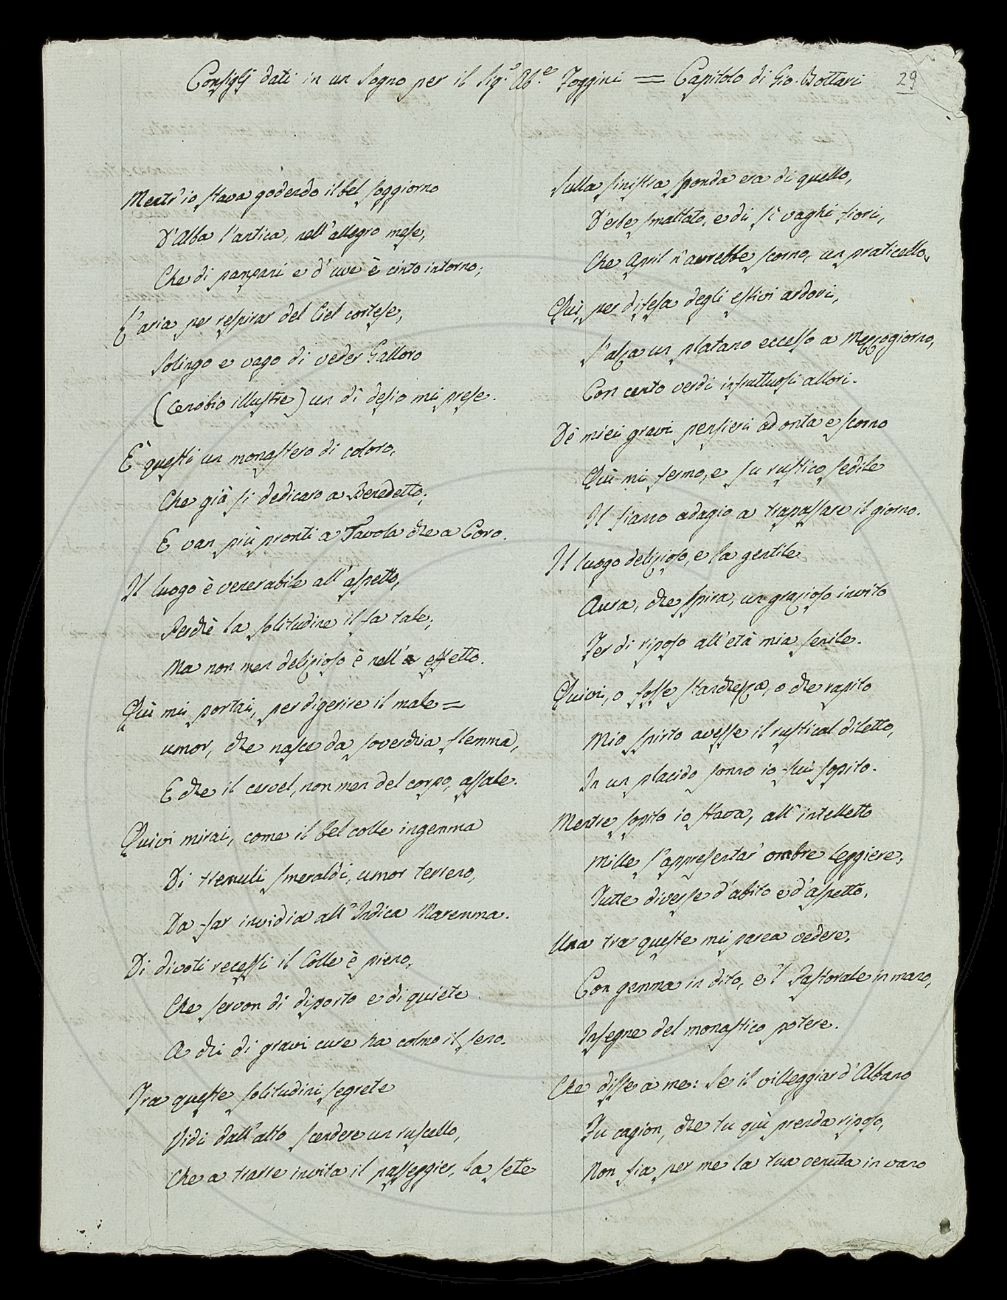 Consiglj dati in un sogno per il Sig.e Ab.e Foggini = Capitolo di Gio. Bottari
29
Mentr'io stava godendo il bel soggiorno
D'Alba l'antica, nell'allegro mese,
Che di pampani e d'uve è cinto intorno;
E l'aria per respirar del Ciel cortese,
Solingo e vago di veder Galloro
(Cenobio illustre) un dì desio mi prese.
È questi un monastero di coloro,
Che già si dedicaro a Benedetto;
E van più pronti a Tavola che a Coro.
Il luogo è venerabile all'aspetto,
Perchè la solitudine il fa tale;
Ma non men delizioso è nell'effetto.
Quì mi portai, per digerire il male=
umor, che nasce da soverchia flemma,
E che il cervel, non men del corpo, assale.
Quivi mirai, come il bel colle ingemma
Di tremuli smeraldi, umor terreno,
Da far invidia all'Indica Maremma.
Di divoti recessi il Colle è pieno,
Che servon di diporto e di quiete
A chi di gravi cure ha colmo il seno.
Fra queste solitudini segrete
Vidi dall'alto scendere un ruscello,
Che a trarre invita il passeggier, la sete
Sulla sinistra sponda era di quello,
D'erbe smaltato, e di sì vaghi fiori,
Che April n'avrebbe scorno, un praticello.
Qui, per difesa degli estivi ardori,
S'alza un platano eccelso a Mezzogiorno,
Con cento verdi infruttuosi allori.
De' miei gravi pensieri ad onta e scorno
Quì mi fermo, e su rustico sedile
Il fianco adagio a trapassare il giorno.
Il luogo delizioso, e la gentile
Aura, che spira, un grazioso invito
Fer di riposo all'età mia senile.
Quivi, o fosse stanchezza, o che rapito
Mio spirto avesse il rustical diletto,
In un placido sonno io fui sopito.
Mentre sopito io stava, all'intelletto
Mille s'appresentar' ombre leggiere,
Tutte diverse d'abito e d'aspetto.
Una tra queste mi parea vedere,
Con gemma in dito, e 'l Pastorale in mano,
Insegne del monastico potere.
Che disse a me: Se il villeggiar d'Albano
Fu cagion, che tu quì prenda riposo,
Non fia per me la tua venuta in vano